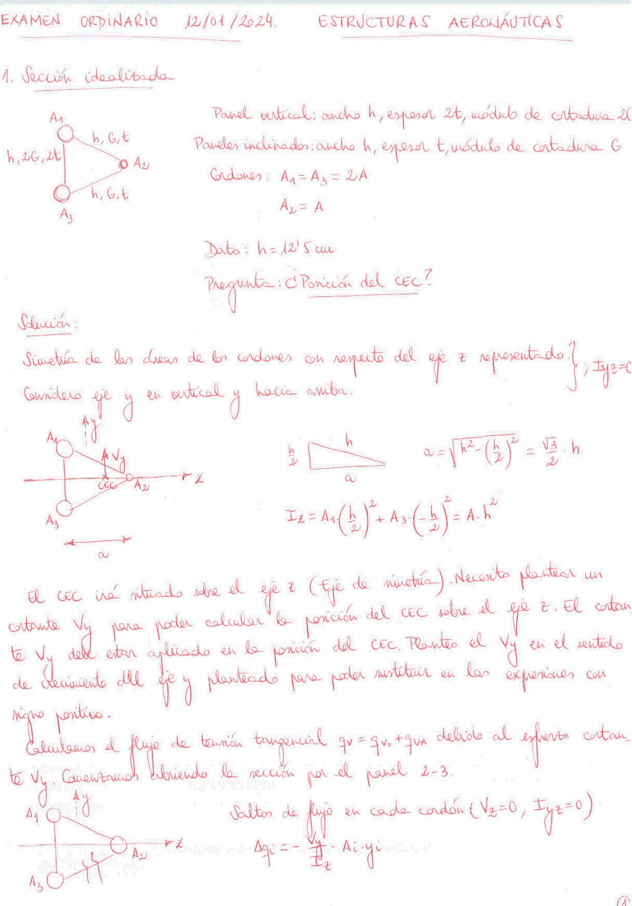 EXAMEN ORDINARIO 12/01/2024. ESTRUCTURAS AERONÁUTICAS
1. Sección idealizada
A1
h, G, t
h, 2G, 2t
A2
h, G, t
A3
Panel vertical: ancho h, espesor 2t, módulo de cortadura 2G
Paneles inclinados: ancho h, espesor t, módulo de cortadura G
Cordones: A1 = A3 = 2A
A2 = A
Dato: h = 12'5 cm
Pregunta: ¿Posición del CEC?
Solución:
Simetría de las áreas de los cordones con respecto del eje z representado.} ; Iyz=0
Considero eje y en vertical y hacia arriba.
y
A1
Vy
z
CEC
A2
A3
a
h/2
h
a
a = √(h² - (h/2)²) = √3/2 · h
Iz = A1·(h/2)² + A3·(-h/2)² = A·h²
El CEC irá situado sobre el eje z (Eje de simetría). Necesito plantear un
cortante Vy para poder calcular la posición del CEC sobre el eje z. El cortan
te Vy debe estar aplicado en la posición del CEC. Planteo el Vy en el sentido
de crecimiento del eje y planteado para poder sustituir en las expresiones con
signo positivo.
Calculamos el flujo de tensión tangencial qv = qv0 + qvA debido al esfuerzo cortan_
te Vy. Comenzamos abriendo la sección por el panel 2-3.
y
A1
z
A2
A3
Saltos de flujo en cada cordón (Vz=0, Iyz=0)
Δqi = - Vy/Iz · Ai·yi
1